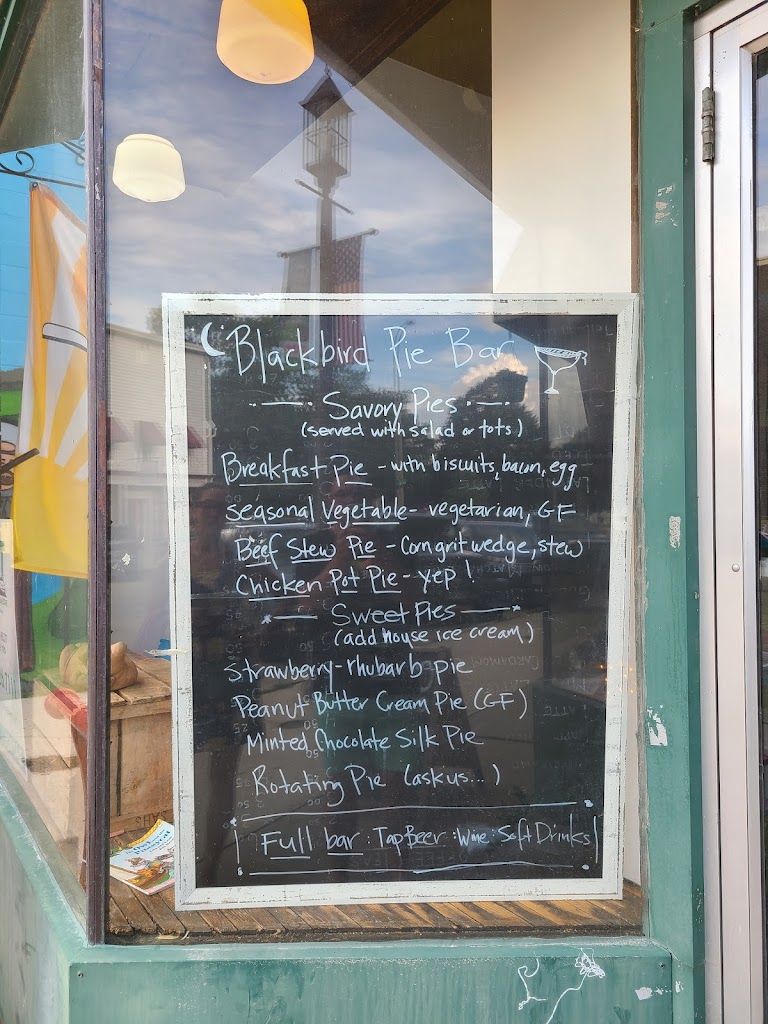 Blackbird Pie Bar
Savory Pies
(served with salad or tots)
Breakfast Pie - with biscuits, bacon, egg
seasonal Vegetable - vegetarian, GF
Beef Stew Pie - Corn grit wedge, stew
Chicken Pot Pie - yep!
Sweet Pies
(add house ice cream)
Strawberry-rhubarb pie
Peanut Butter Cream Pie (GF)
Minted Chocolate Silk Pie
Rotating Pie (ask us...)
Full bar : Tap Beer : Wine : Soft Drinks